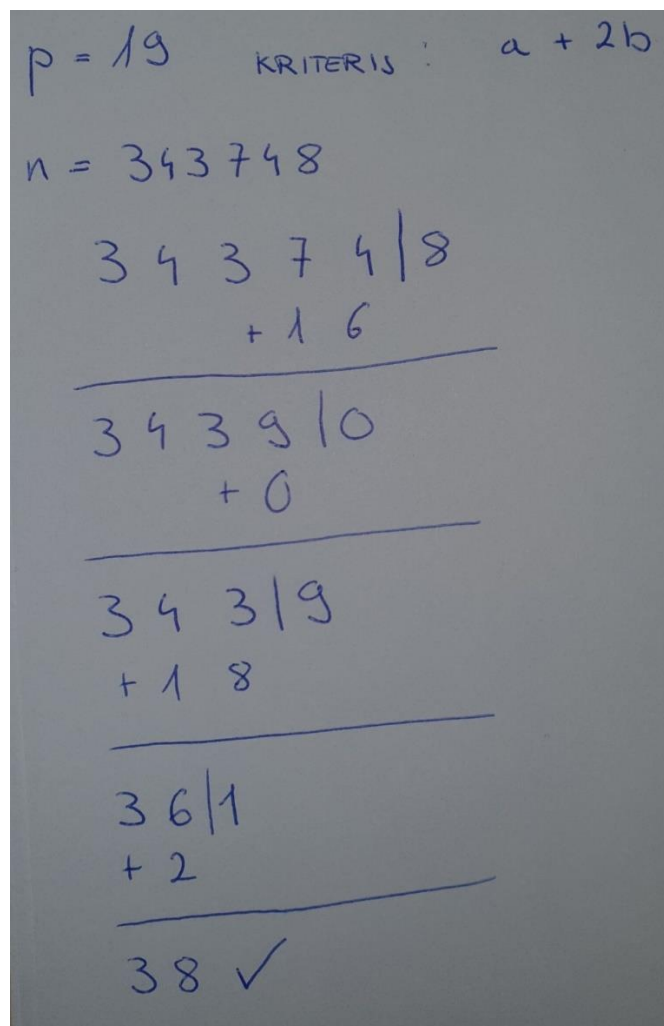 p = 19 KRITERIJ : a + 2b
n = 343748
3 4 3 7 4 | 8
+ 1 6
3 4 3 9 | 0
+ 0
3 4 3 | 9
+ 1 8
3 6 | 1
+ 2
3 8 ✓